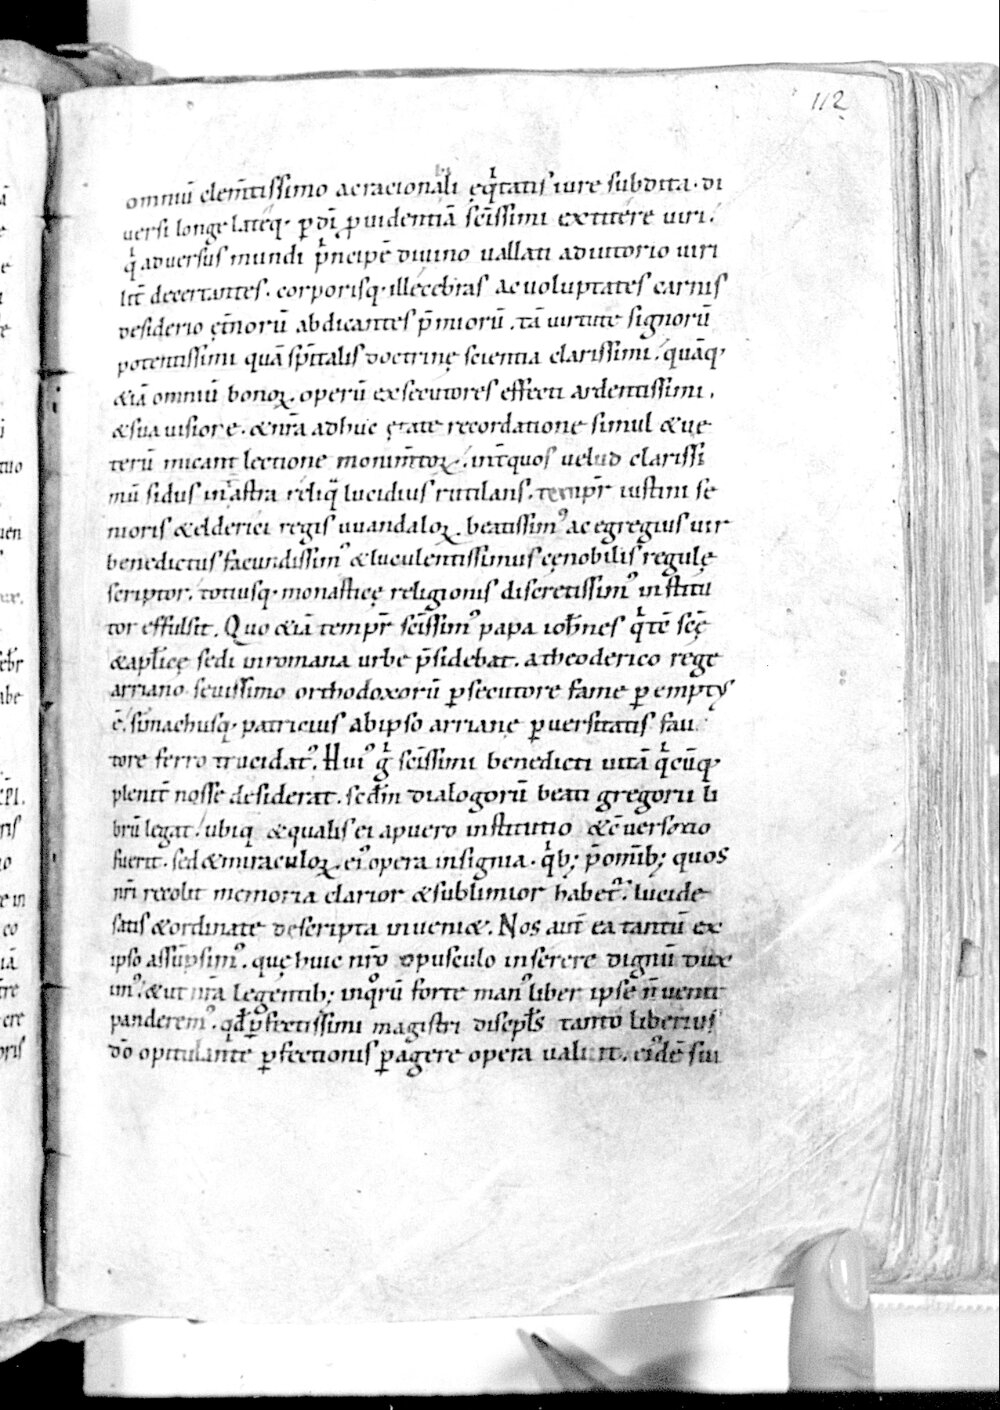 112
omniũ clem̃tissimo ac racionali eq̇tatis iure subdita. di
uersi longe lateq; ꝑ dı̃ ꝓuidentiã sc̃issimi extitere uiri.
q̇ aduersus mundi ṗncipẽ diuino uallati adiutorio uiri
lit̃ decertantes. corporisq; illecebras ac uoluptates carnis
desiderio et̃norũ abdicantes p̃miorũ. tã uirtute signorũ
potentissimi quã sp̃italis doctrinę scientia clarissimi. quãq;
&iã omniũ bonoꝝ. operũ exsecutores effecti ardentissimi.
&sua uisione. &nr̃a adhuc ętate recordatione simul &ue
terũ micant lectione monim̃toꝝ. int̃ quos uelud clarissi
mũ sidus int̃ astra reliq̃ lucidius rutilans. tempr̃ iustini se
nioris &elderici regis uuandaloꝝ. beatissim᾿ ac egregius uir
benedictus facundissim᾿ &luculentissimus cęnobilis regulę
scriptor. totiusq; monasticę religionis discretissim᾿ institu
tor effulsit. Quo &iã tempr̃ sc̃issim᾿ papa ioh̃nes q̇ tc̃ sc̃ę
&apl̃icę sedi in romana urbe p̃sidebat. a theoderico rege
arriano seuissimo orthodoxorũ ꝑsecutore fame ꝑemptus
ẽ. simachusq; patricius ab ipso arrianę ꝑuersitatis fau
tore ferro trucidat᾿. Hui᾿ g̊ sc̃issimi benedicti uitã q̇cũq;
plenit̃ nosse desiderat. sc̃dm dialogorũ beati gregorii li
brũ legat. ubiq &qualis ei a puero institutio &cõuersatio
fuerit. sed &miraculoꝝ. ei᾿ opera insignia. q̇b; p̃ omĩb; quos
nr̃i recolit memoria clarior &sublimior habet᾿. lucide
satis &ordinate descripta inueni&. Nos aut̃ ea tantũ ex
ipso assũpsim᾿. quę huic nr̃o opusculo inserere dignũ duxi
im᾿. &ut nr̃a legentib; inq̊rũ forte man᾿ liber ipse ñ uenit
panderem᾿. qd̃ ꝑfectissimi magistri discipl̃s tanto liberius
dõ opitulante ꝑfectionis ꝑagere opera ualuit. ei᾿dẽ sui